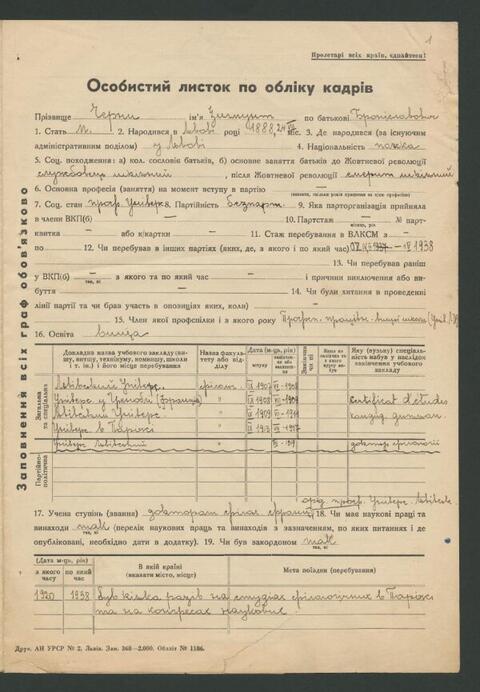 1
Пролетарі всіх країн, єднайтеся!
Особистий листок по обліку кадрів
Прізвище Черни ім'я Зигмунт по батькові Броніславович
1. Стать м. 2. Народився в Львові році 1888, 24 міс. 3. Де народився (за існуючим
адміністративним поділом) у Львові 4. Національність поляк
5. Соц. походження: а) кол. сословіє батьків, б) основне заняття батьків до Жовтневої революції
службовець шкільний, після Жовтневої революції емерит шкільний
6. Основна професія (заняття) на момент вступу в партію —
7. Соц. стан проф. Універс. 8. Партійність Безпарт. 9. Яка парторганізація прийняла
в члени ВКП(б) — 10. Партстаж — № парт-
квитка — або к/картки — 11. Стаж перебування в ВЛКСМ з —
по — 12. Чи перебував в інших партіях (яких, де, з якого і по який час) 1938
— 13. Чи перебував раніш
у ВКП(б) — з якого та по який час — і причини виключення або ви-
буття — 14. Чи були хитання в проведенні
лінії партії та чи брав участь в опозиціях яких, коли) —
15. Член якої профспілки і з якого року
16. Освіта вища
Докладна назва учбового закладу (вишу, втишу, технікуму, комвишу, школи і т. ін.) і його місце перебування
Назва факультету або відділу
Дата (м-ць, рік)
вступу
Яку (вузьку) спеціальність набув у наслідок закінчення учбового закладу
Загальна та спеціальна
Львівський Універс. філол. IX 1907 VI 1908
Універс. у Гренобл (Франція) " IX 1908 VI 1909 certificat d'études
Львівський Універс. " 1909 1911
Універс. в Парижі "
Універс. Львівський " доктор філології
Партійно-політична
17. Учена ступінь (звання) 18. Чи має наукові праці та
винаходи так (перелік наукових праць та винаходів з зазначенням, по яких питаннях і де
опубліковані, необхідно дати в додатку). 19. Чи був закордоном так
Дата (м-ць, рік)
з якого часу
по який час
В якій країні
(вказати місто, місце)
Мета поїздки (перебування)
1920 1938 Був кілька разів на студіах філологічних в Парижі
та на конгресах наукових.
Заповнення всіх граф обов'язково
Друк. АН УРСР № 2. Львів. Зам. 368—2.000. Обліт № 1186.